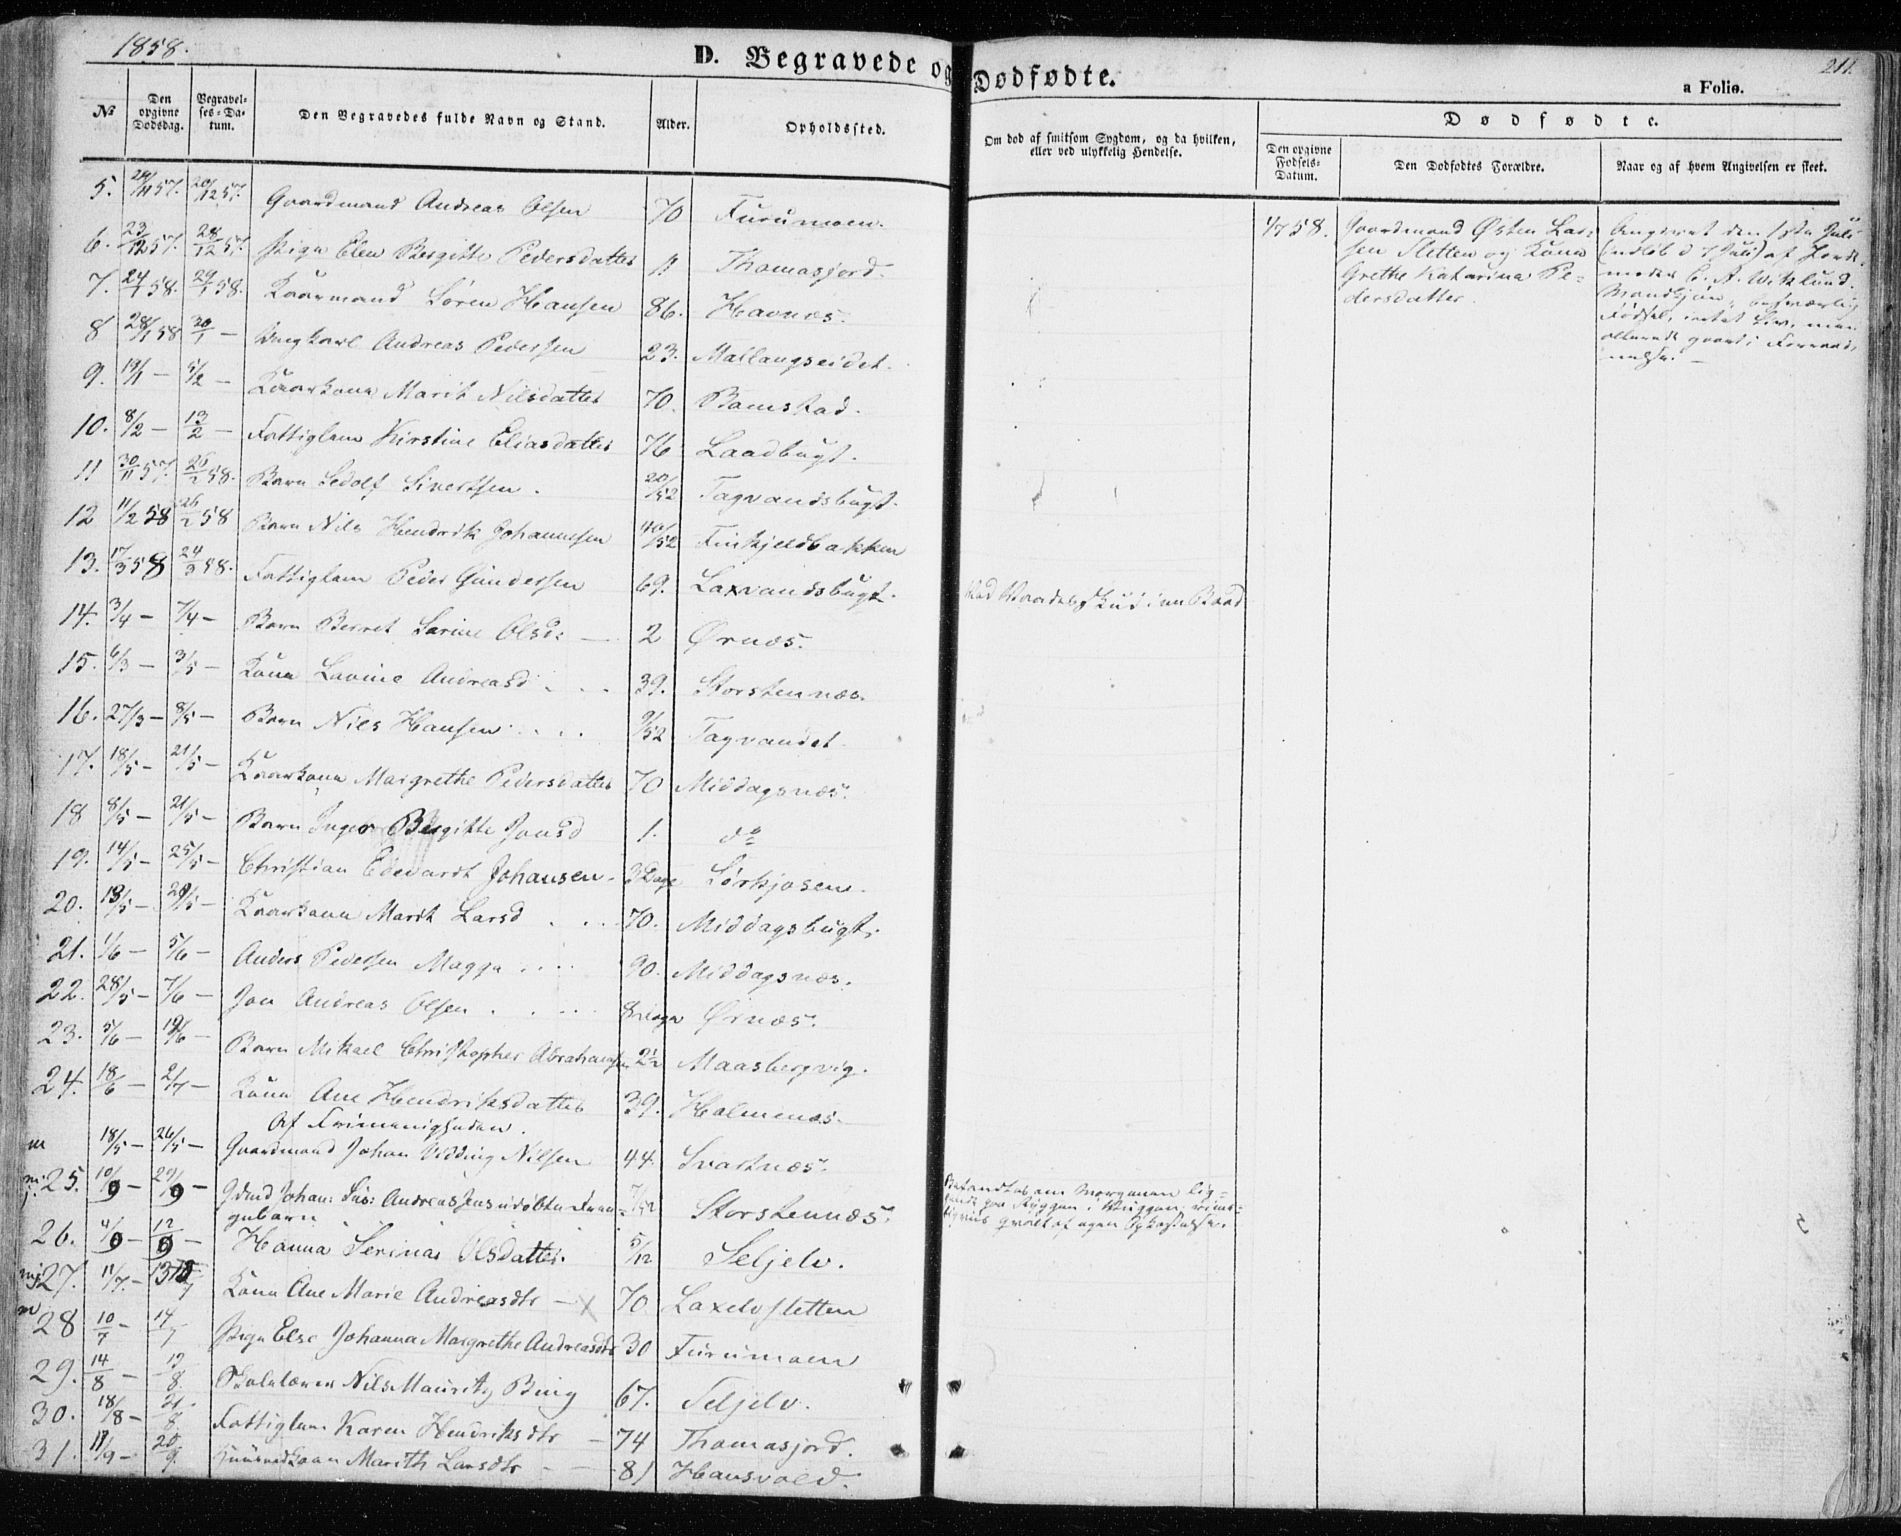 1858.
D. Begravede og Dødfødte.
211.
a Folio.
No
Den opgivne Dødsdag.
Begravelses-Datum.
Den Begravedes fulde Navn og Stand.
Alder.
Opholdssted.
Om død af smitsom Sygdom, og da hvilken,
eller ved ulykkelig Hendelse.
Dødfødte.
Den opgivne Fødsels-Datum.
Den Dødfødtes Forældre.
Naar og af hvem Angivelsen er skeet.
5. 24/11 57. 20/12 57. Gaardmand Andreas Olsen 70 Furumoen.
6. 23/12 57. 28/12 57. Pige Elen Birgitte Pedersdatter 11 Thomasjord.
7. 24/1 58. 29/1 58. Kaarmand Søren Hansen 86. Havnæs.
8 28/1 58 30/1 — Ungkarl Andreas Pedersen 23. Mallangseidet.
9. 19/1 — 5/2 — Kaarkone Marit Nilsdatter 70. Bamstad.
10. 8/2 — 13/2 — Fattiglem Kirstine Eliasdatter 76 Laadbugt.
11 30/11 57. 26/2 58. Barn Sedolf Sivertsen. 20/52 Tagvandsbugt.
12 11/2 58 26/2 58 Barn Nils Hendrik Johannesen 40/52 Finkjeldbakken
13. 17/3 58 24/3 58. Fattiglem Peder Gundersen 69. Laxvandsbugt. Ved Vaadeskud i en Baad
14. 3/4 — 7/4 — Barn Berret Sarine Olsd: — 2 Ørnæs.
15. 6/3 — 3/5 — Kone Lovine Andreasd . . . 39. Storstennæs.
16. 27/3 — 8/5 — Barn Nils Hansen . . . . 9/52 Tagvandet.
17. 18/5 — 21/5 — Kaarkone Margrethe Pedersdatter 70 Middagsnæs.
18 8/5 — 21/5 — Barn Inger Birgitte Jonsd 1. do
19. 14/5 — 25/5 — Christian Edevardt Johansen. 3 Dage Sørkjosen.
20. 19/5 — 29/5 — Kaarkone Marit Larsd . . . 70. Middagsbugt.
21. 1/6 — 5/6 — Anders Pedersen Magga . . . . 90. Middagsnæs.
22. 28/5 — 7/6 — Jon Andreas Olsen . . . . . 8 Dage Ørnæs.
23. 5/6 — 19/6 — Barn Mikael Christopher Abrahamsen 2½ Maasbergvig.
24. 18/6 — 2/7 — Kone Ane Hendriksdatter 39. Holmenæs.
Af Frimenigheden.
m 18/5 — 26/5 — Gaardmand Johan Nilsen 44 Svartnæs.
25. 10/9 — 29/9 — Gdmd Johan: Andreas Jens udøbte
gebarn 7/52 Storstennæs. Befandtes om Morgenen lig-
gende paa Ryggen i Vuggen,
qvalt af egen
26. 4/9 — 12/9 — Hanna Serina Olsdatter. 5/12 Seljelv.
27. 11/7 — 13/7 Kone Ane Marie Andreasdtr — X 70. Laxelvsletten
m 28 10/7 — 14/7 Pige Else Johanna Margrethe Andreasdtr 30 Furumoen
29. 14/8 — 19/8 Skolelærer Nils Mauritz Bing 67. Seljelv.
30. 18/8 — 21/8 Fattiglem Karen Hendriksdtr — 74 Thomasjord.
31. 11/9 — 20/9 Marith Larsdtr — — 81 Hansvold.
4/7 58. Gaardmand Østen Lar-
sen Sletten og Kone
Grethe Katarina Pe-
dersdatter.
Angivet den 1ste Juli
(indløb d 7 Juli) af Jorde-
moder C. A. Wiklund.
Mandkjøn,
Fødsel, intet Liv, men
allerede gaaet i Forraad-
nelse. —